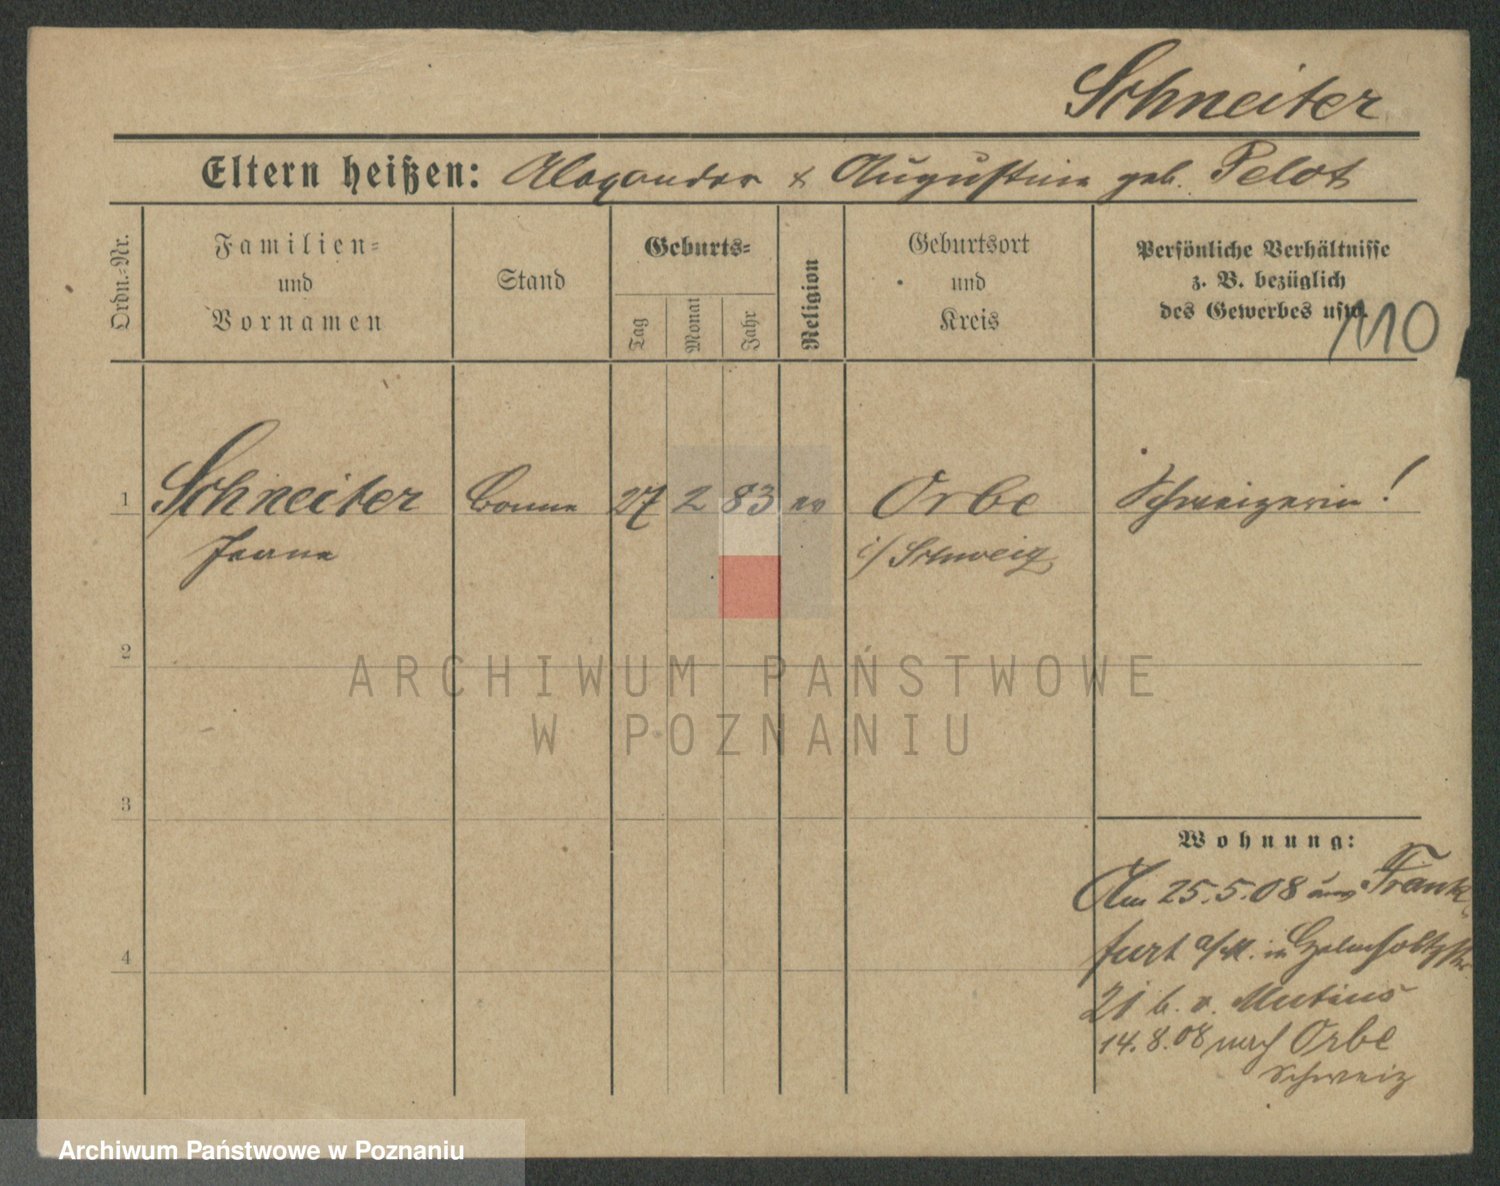 Schneiter
Eltern heißen: Alexander & Augustine geb. Pelot
Ordn.-Nr.
Familien-
und
Vornamen
Stand
Geburts-
Tag
Monat
Jahr
Religion
Geburtsort
und
Kreis
Persönliche Verhältnisse
z. B. bezüglich
des Gewerbes usw.
110
1 Schneiter Bonne 27 2 83 ev Orbe Schweizerin!
Jeanne i/ Schweiz
2
ARCHIWUM PAŃSTWOWE
W POZNANIU
3
Wohnung:
Am 25.5.08 aus Frank-
furt a/M. in Helmholtzstr.
21 b. v. Mutius
4
14.8.08 nach Orbe
Schweiz
Archiwum Państwowe w Poznaniu